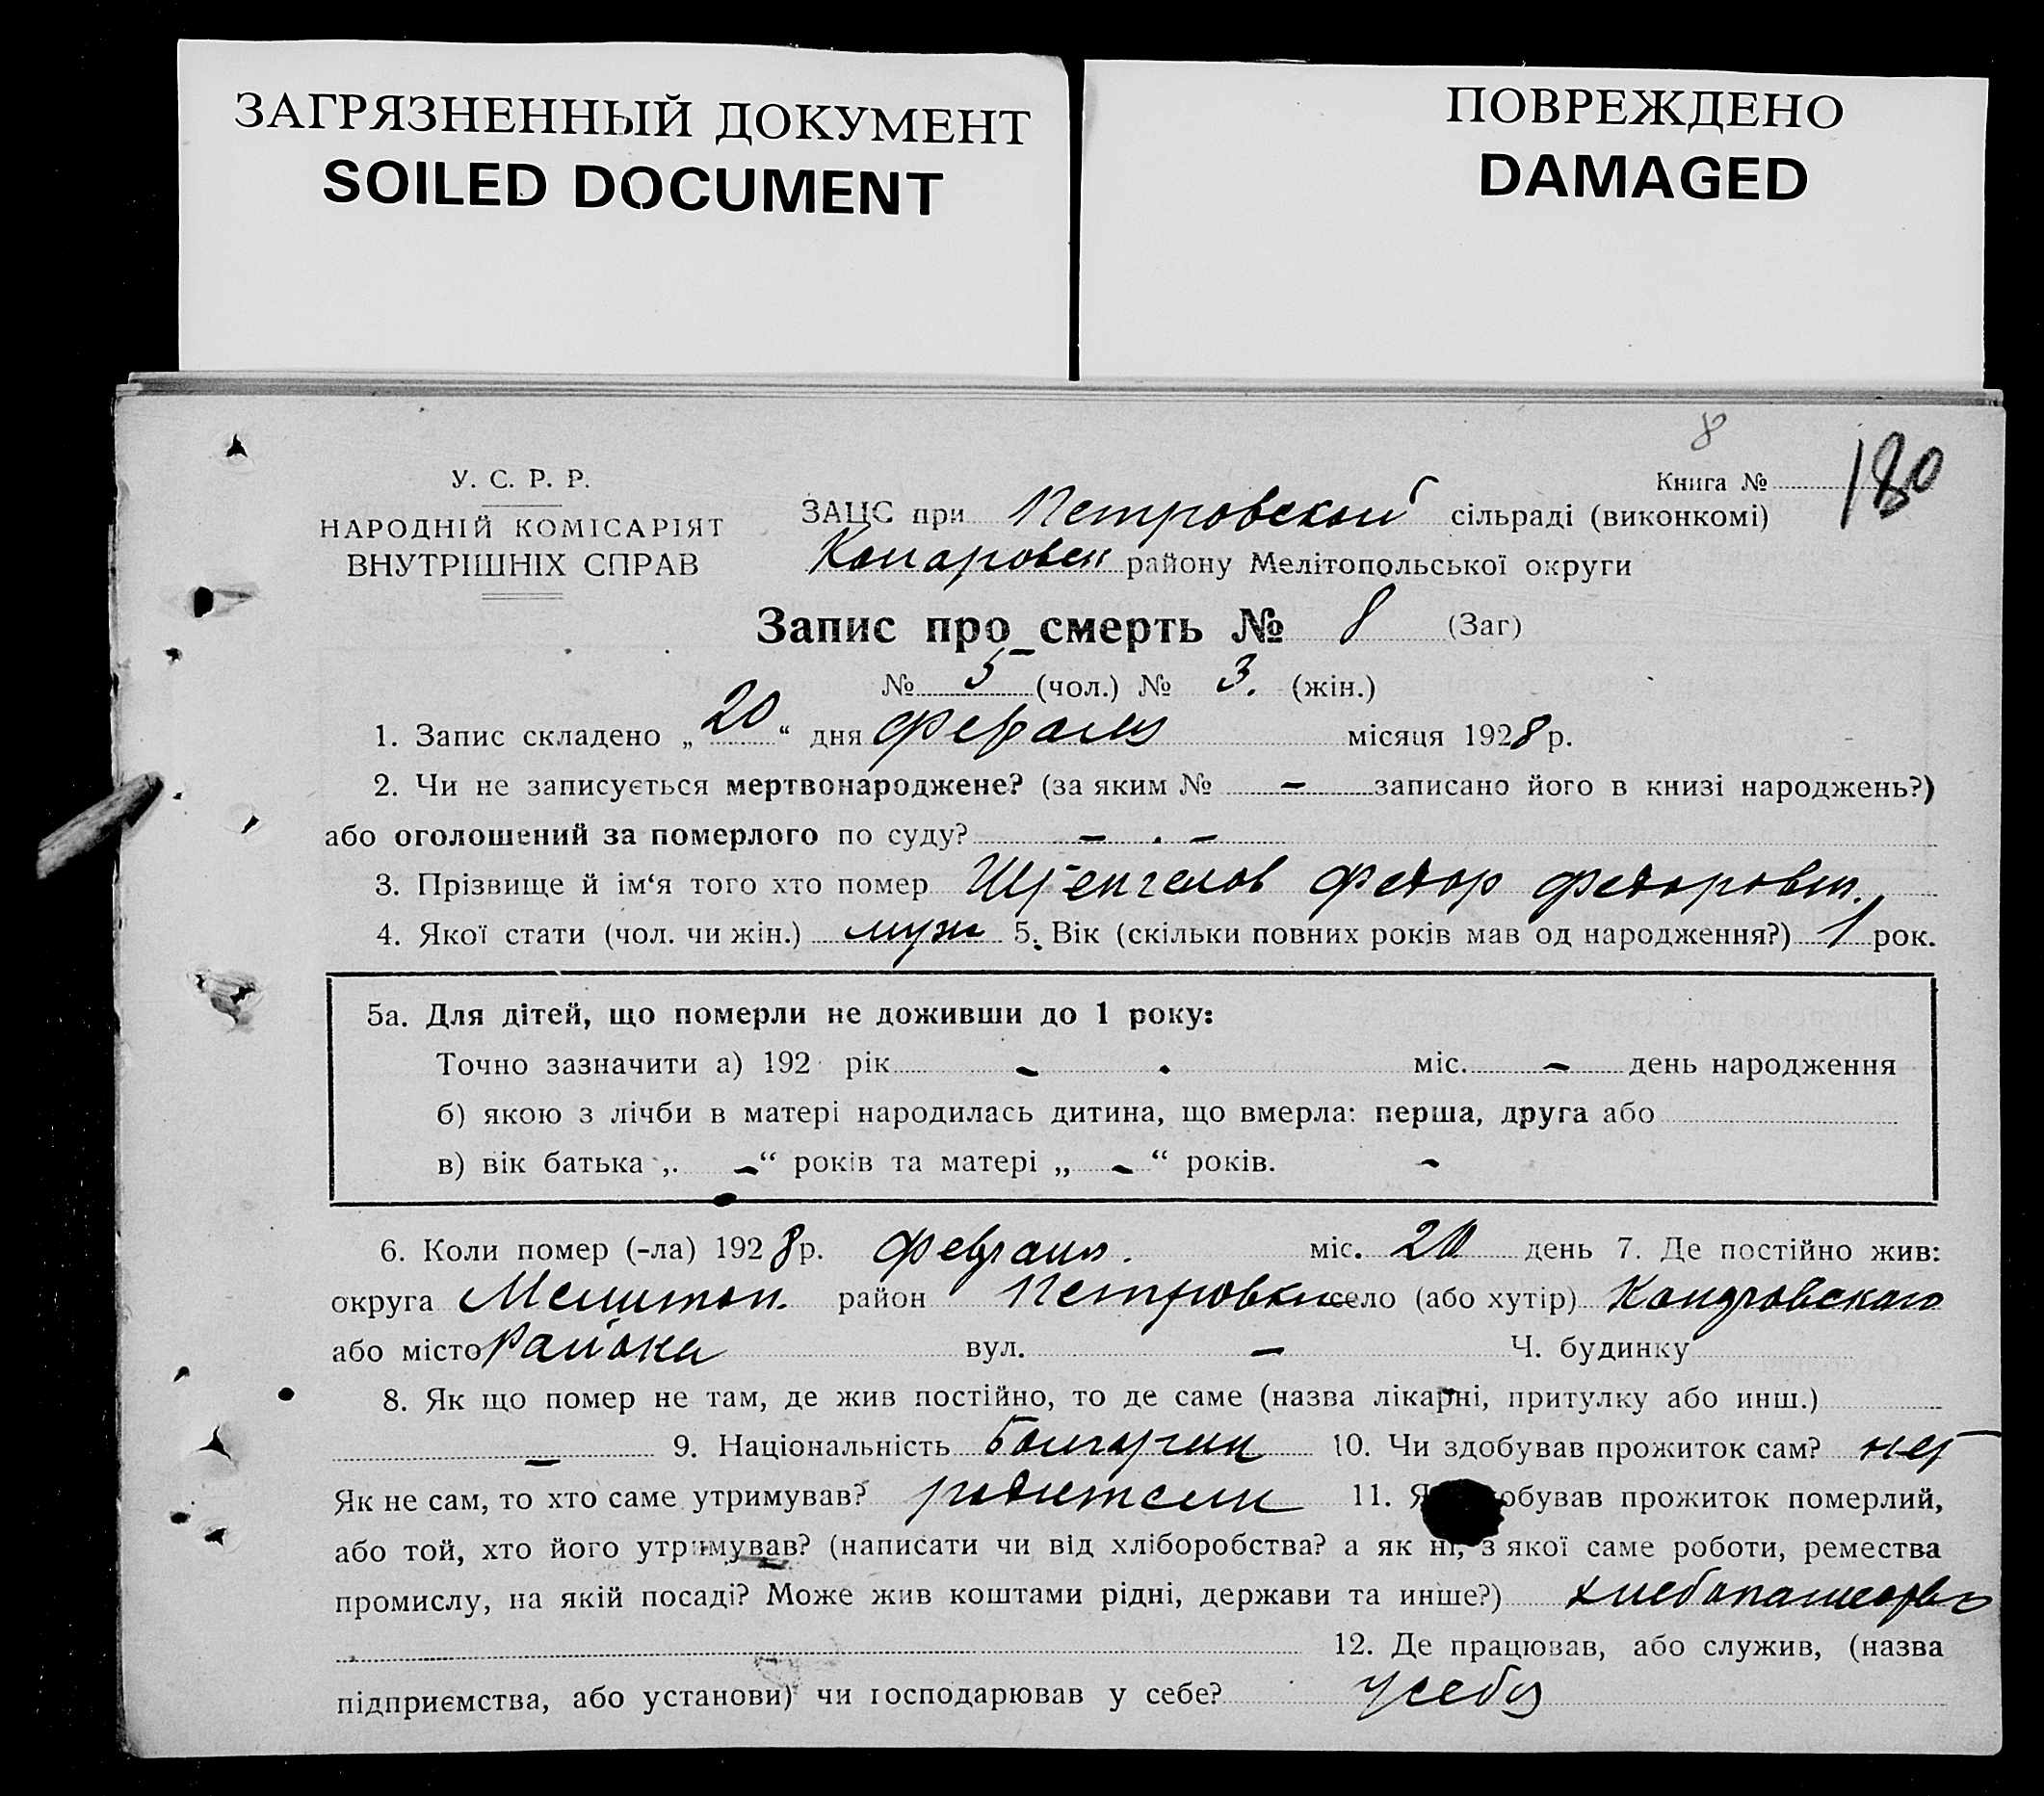 ЗАГРЯЗНЕННЫЙ ДОКУМЕНТ
SOILED DOCUMENT
ПОВРЕЖДЕНО
DAMAGED
8
У. С. Р. Р.
НАРОДНІЙ КОМІСАРІЯТ
ВНУТРІШНІХ СПРАВ
Книга № 180
ЗАЦС при Петровской сільраді (виконкомі)
району Мелітопольської округи
Запис про смерть № 8 (Заг)
№ 5 (чол.) № 3. (жін.)
1. Запис складено „ 20 “ дня февраля місяця 1928 р.
2. Чи не записується мертвонароджене? (за яким № – записано його в книзі народжень?)
або оголошений за померлого по суду? – . –
3. Прізвище й ім‘я того хто помер Федор Федорович.
4. Якої стати (чол. чи жін.) муж 5. Вік (скільки повних років мав од народження?) 1 рок.
5а. Для дітей, що померли не доживши до 1 року:
Точно зазначити а) 192 рік – . міс. – день народження
б) якою з лічби в матері народилась дитина, що вмерла: перша, друга або
в) вік батька „ – “ років та матері „ – “ років. –
6. Коли помер (-ла) 1928 р. февраля. міс. 20 день 7. Де постійно жив:
округа Мелитоп. район Петровка село (або хутір)
або місто Района вул. – Ч. будинку
8. Як що помер не там, де жив постійно, то де саме (назва лікарні, притулку або инш.)
– 9. Національність Болгарин 10. Чи здобував прожиток сам? нет
Як не сам, то хто саме утримував? родители 11. прожиток померлий,
або той, хто його утримував? (написати чи від хліборобства? а як ні, з якої саме роботи, ремества
промислу, на якій посаді? Може жив коштами рідні, держави та инше?) хлебопашество
12. Де працював, або служив, (назва
підприємства, або установи) чи господарював у себе? у себя